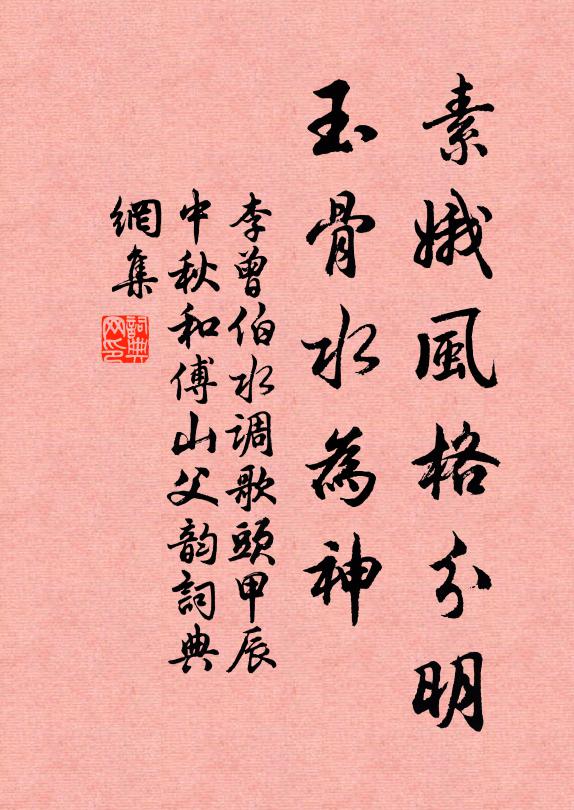 素娥風格分明
玉骨水為神
李曾伯水调歌頭甲辰
中秋和傅山父韵詞典
網集
詞典网印